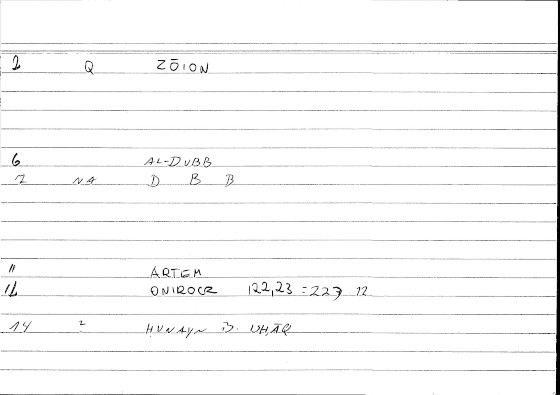 1 Q ZŌION
6 AL-DUBB
7 NA D B B
11 ARTEM
12 ONIROCR 122,23 = 223 12
14 2 HUNAYN B.